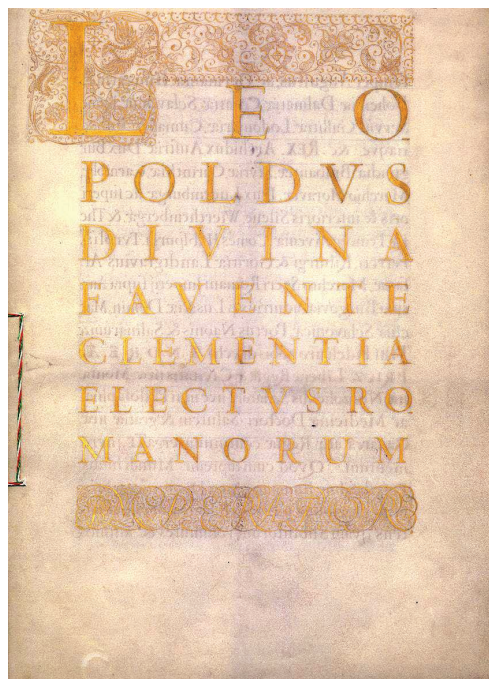 LEO
POLDVS
DIVINA
FAVENTE
CLEMENTIA
ELECTVS RO
MANORUM
IMPERATOR